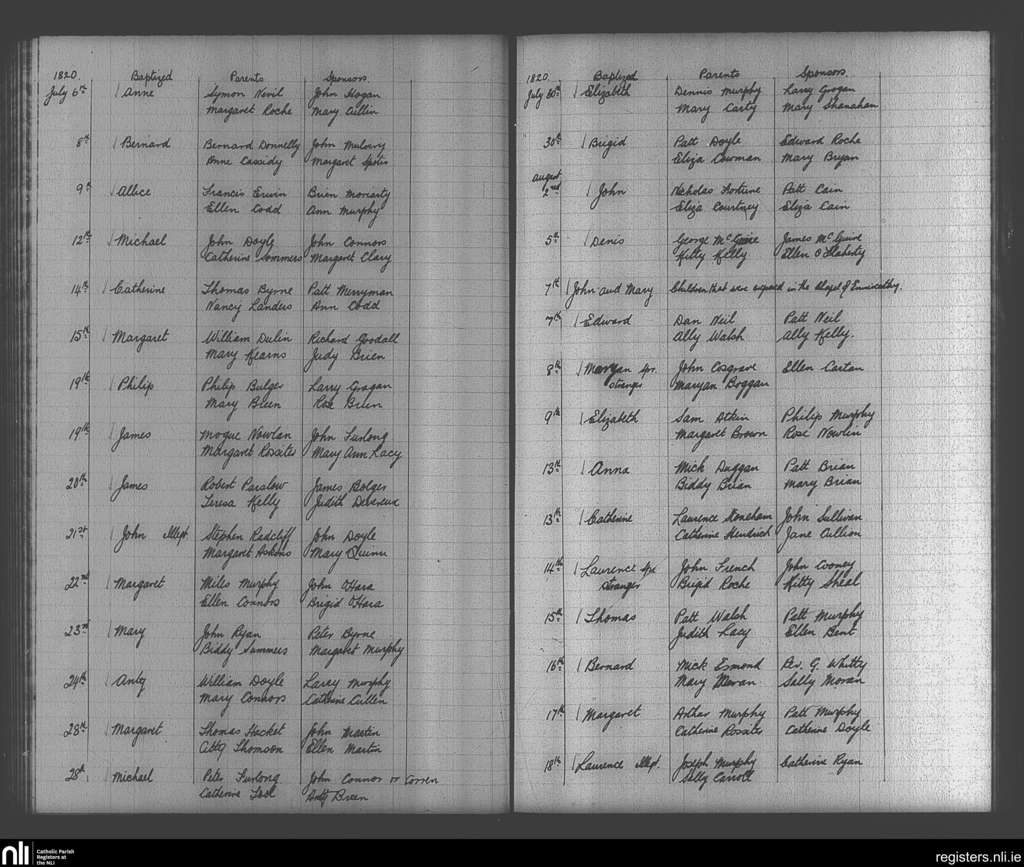 1820. Baptized Parents Sponsors.
July 6th Anne Symon Nevil John Hogan
Margaret Roche Mary Cullen
8th Bernard Bernard Donnelly John Mulowry
Anne Cassidy Margaret
9th Allice Francis Erwin Brien Moriarty
Ellen Codd Ann Murphy
12th Michael John Doyle John Connors
Catherine Sommers Margaret Clary
14th Catherine Thomas Byrne Patt Merryman
Nancy Landers Ann Codd
15th Margaret William Dulin Richard Goodall
Mary Kearns Judy Brien
19th Philip Philip Bulger Larry Grogan
Mary Breen Rose Brien
19th James Mogue Nowlan John Furlong
Margaret Rossiter Mary Ann Lacy
20th James Robert Parslow James Bolger
Teresa Kelly Judith Devereux
21st John Illegt. Stephen Radcliff John Doyle
Margaret Askins Mary Quinn
22nd Margaret Miles Murphy John O'Hara
Ellen Connors Brigid O'Hara
23rd Mary John Ryan Peter Byrne
Biddy Summers Margaret Murphy
24th Anty William Doyle Larry Murphy
Mary Connors Catherine Cullen
28th Margaret Thomas Hacket John Martin
Abby Thomson Ellen Martin
28th Michael Peter Furlong John Connor or Corren
Catherine Anty Breen
1820. Baptized Parents Sponsors.
July 30th Elizabeth Dennis Murphy Larry Grogan
Mary Carty Mary Shanahan
30th Brigid Patt Doyle Edward Roche
Eliza Cowman Mary Bryan
August
2nd John Nicholas Fortune Patt Cain
Eliza Courtney Eliza Cain
5th Denis George McGuire James McGuire
Kitty Kelly Ellen O'Flaherty
7th John and Mary Children that were exposed in the Chapel of Enniscorthy.
7th Edward Dan Neil Patt Neil
Ally Walsh Ally Kelly.
8th Maryan spr. John Cosgrave Ellen Cartan
stranger Maryan Boggan
9th Elizabeth Sam Atkin Philip Murphy
Margaret Brown Rose Nowlin
13th Anna Mick Duggan Patt Brian
Biddy Brian Mary Brian
13th Catherine Laurence Stoneham John Sullivan
Catherine Hendrick Jane Cullion
14th Laurence spr. John French John Cooney
stranger Brigid Roche Kitty Sheal
15th Thomas Patt Walsh Patt Murphy
Judith Lacy Ellen Bent
16th Bernard Mick Esmond Rev. G. Whitty
Mary Sally Moran
17th Margaret Arthur Murphy Patt Murphy
Catherine Rossiter Catherine Doyle
18th Laurence Illegt. Joseph Murphy Catherine Ryan
Sally Carroll
nli Catholic Parish
Registers at
the NLI
registers.nli.ie